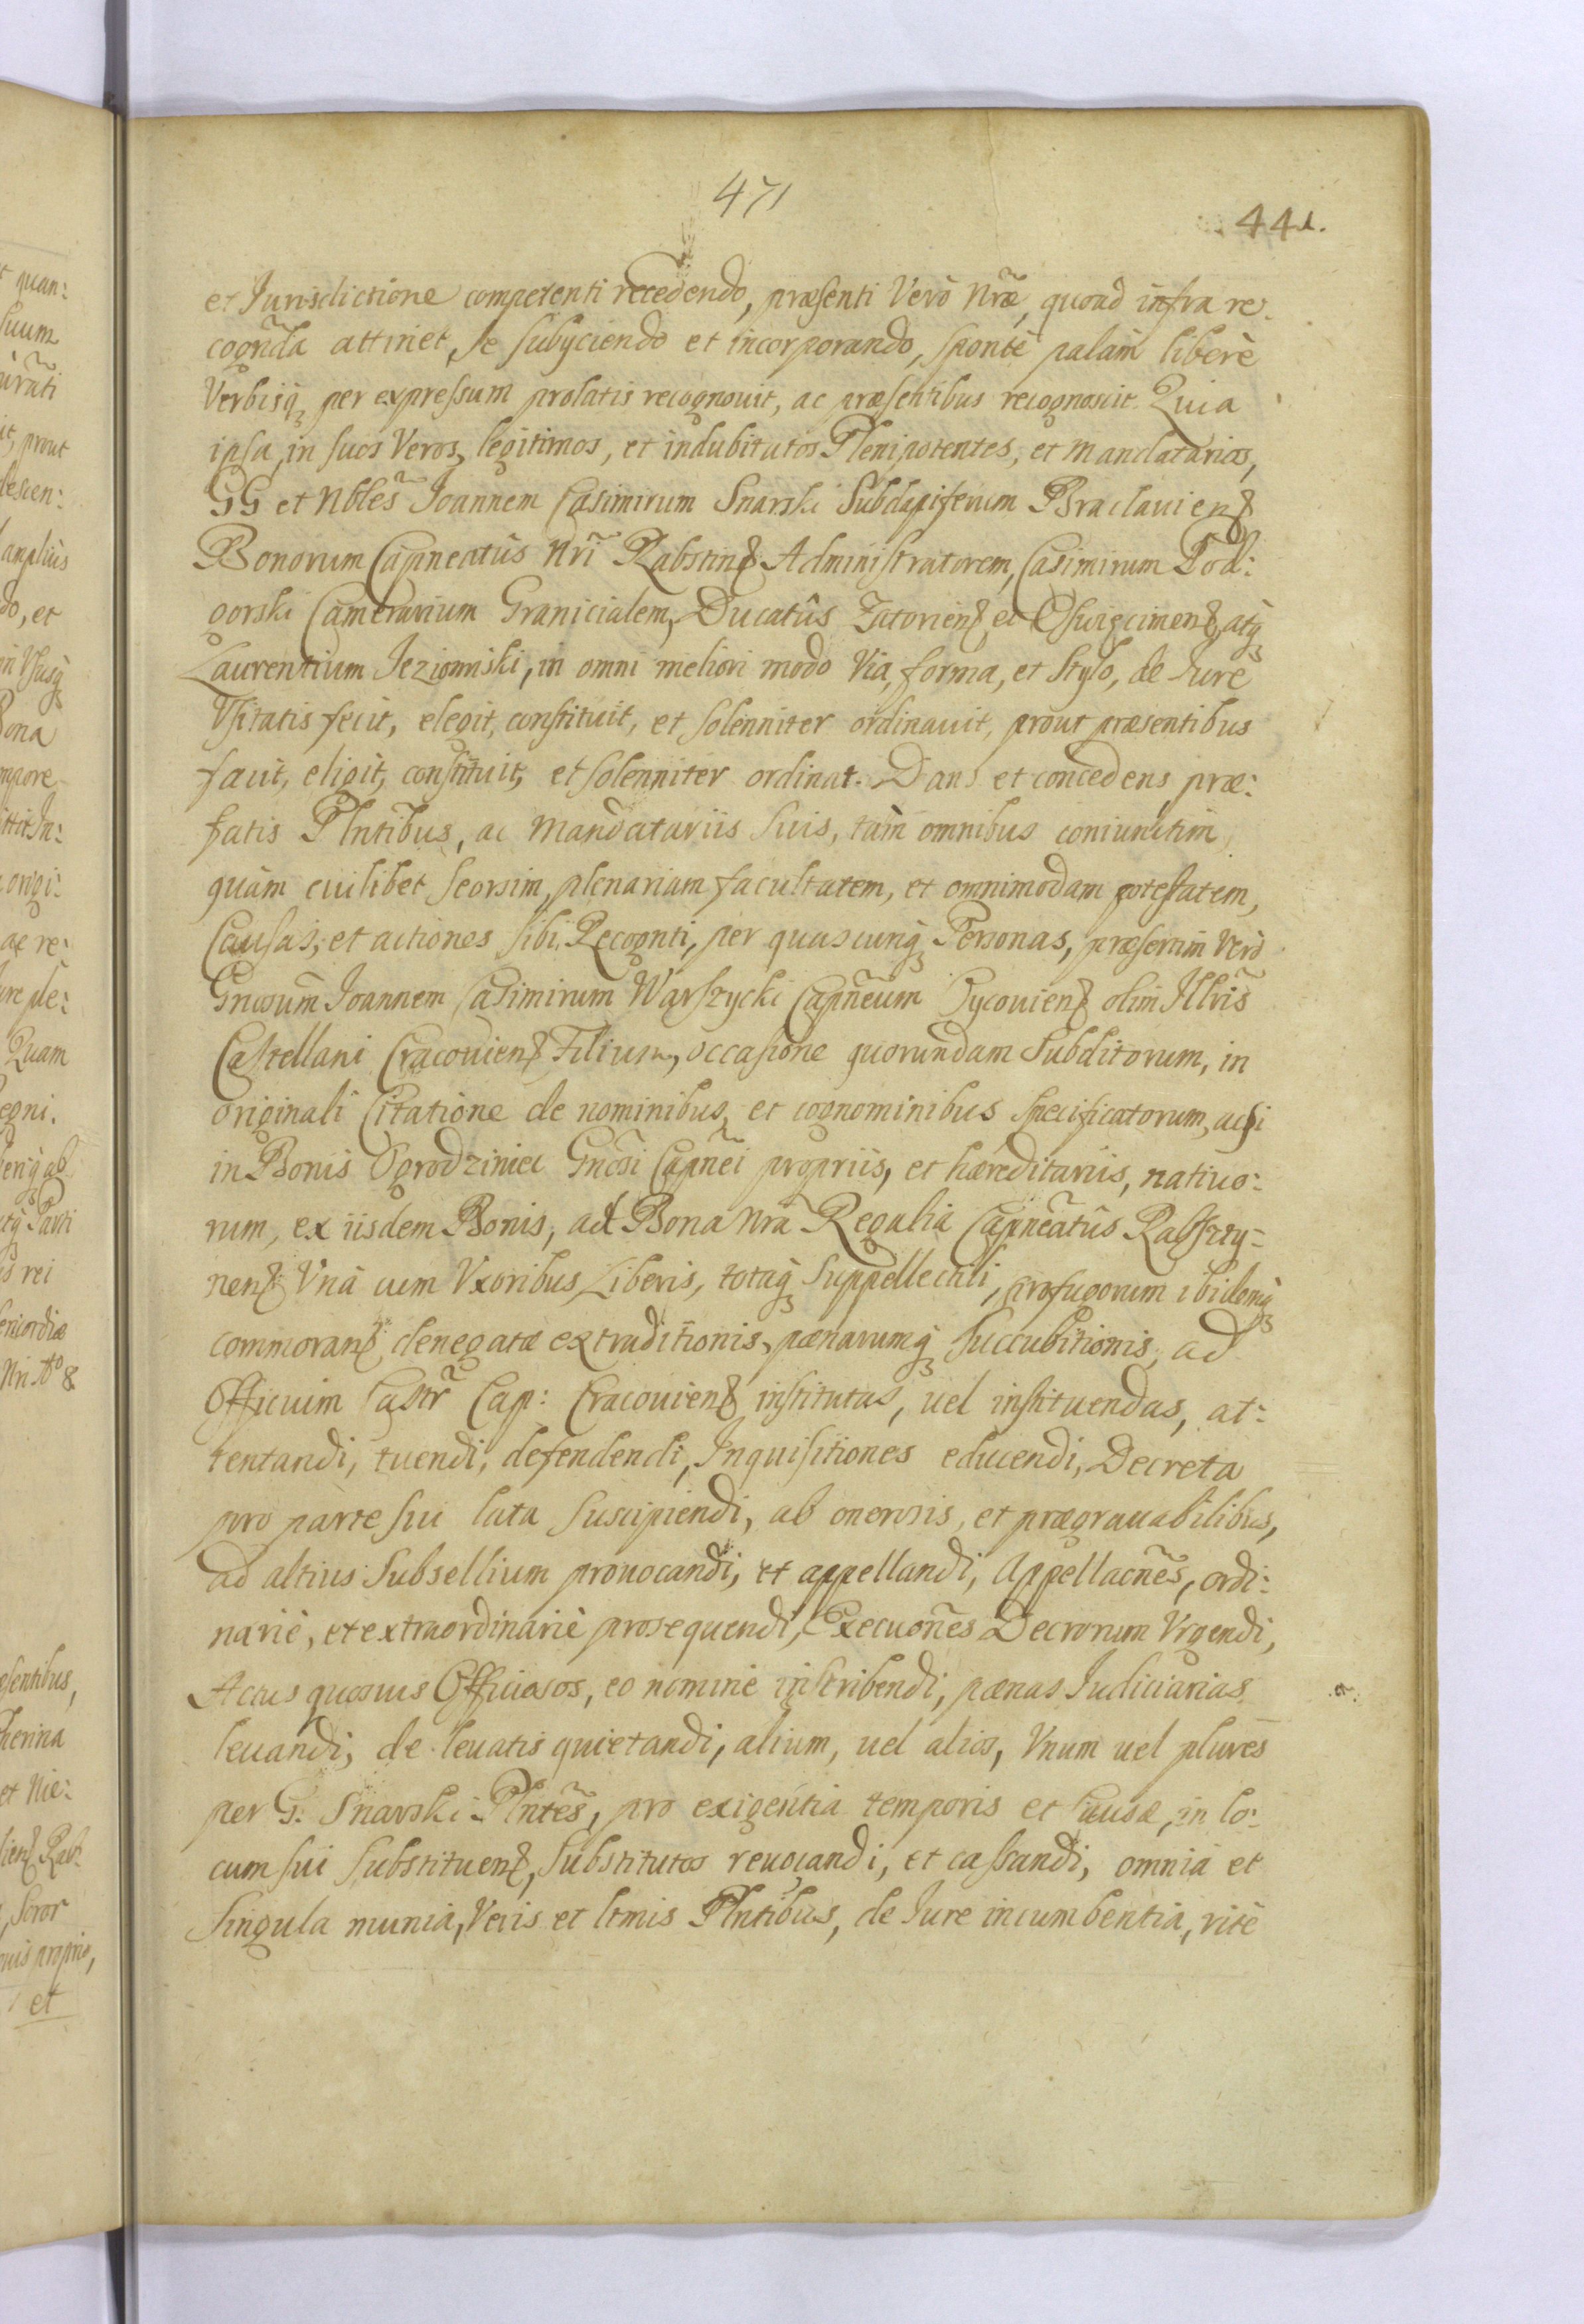 471
441.
et Jurisdictione competenti recedendo, præsenti Verò Nræ, quoad infra re:
cognda attinet, se subyciendo et incorporando, sponte palàm liberè
Verbisq per expressum prolatis recognouit, ac præsentibus recognoscit. Quia
ipsa, in suos Veros, legitimos, et indubitatos Plenipotentes, et Mandatarios,
GG et Nbles Joannem Casimirum Snarski Subdapiferum Braclauien
Bonorum Capneatûs Nri Rabstin Administratorem, Casimirum Pod:
gorski Camerarium Granicialem, Ducatûs Zatorien et Oswięcimen, atq
Laurentium Jeziomiski, in omni meliori modo Via, forma, et Stylo, de Jure
Vsitatis fecit, elegit, constituit, et solenniter ordinauit, prout præsentibus
facit, eligit, constituit, et solenniter ordinat. Dans et concedens præ:
fatis Plntibus, ac Mandatariis suis, tàm omnibus coniunctim
quàm cuilibet seorsim, plenariam facultatem, et omnimodam potestatem,
Causas, et actiones sibi Recognti, per quascunq Personas, præsertim Verò
Gnrosum Joannem Casimirum Warszycki Capneum Pycouien olim Illris
Castellani Cracouien Filium, occasione quorundam Subditorum, in
originali Citatione de nominibus, et cognominibus specificatorum, acsi
in Bonis Ogrodziniec Gnosi Capnei propriis, et hæreditariis, natiuo:
rum, ex iisdem Bonis, ad Bona Nra Regalia Capneatûs Rabszty=
nen Vnà cum Vxoribus, Liberis, totaq Suppellectili, profugorum ibidemq
commoran, denegatæ extraditionis, pænarumq succubitionis, ad
Officium Castr Cap: Cracouien institutas, uel instituendas, at:
tentandi, tuendi, defendendi, Inquisitiones educendi, Decreta
pro parte sui lata suscipiendi, ab onerosis, et prægrauabilibus,
ad altius Subsellium prouocandi, et appellandi, Appellacnes, ordi:
nariè, et extraordinariè prosequendi, Execuones Decrorum Vrgendi,
Actus quosuis Officiosos, eo nomine inscribendi, pænas Judiciarias
leuandi, de leuatis quietandi, alium, uel alios, Vnum uel plures
per G. Snarski Plntes, pro exigentia temporis et Causæ, in lo:
cum sui substituen, substitutos reuocandi, et cassandi, omnia et
Singula munia, Veris et ltmis Plntibus, de Jure incumbentia, ritè